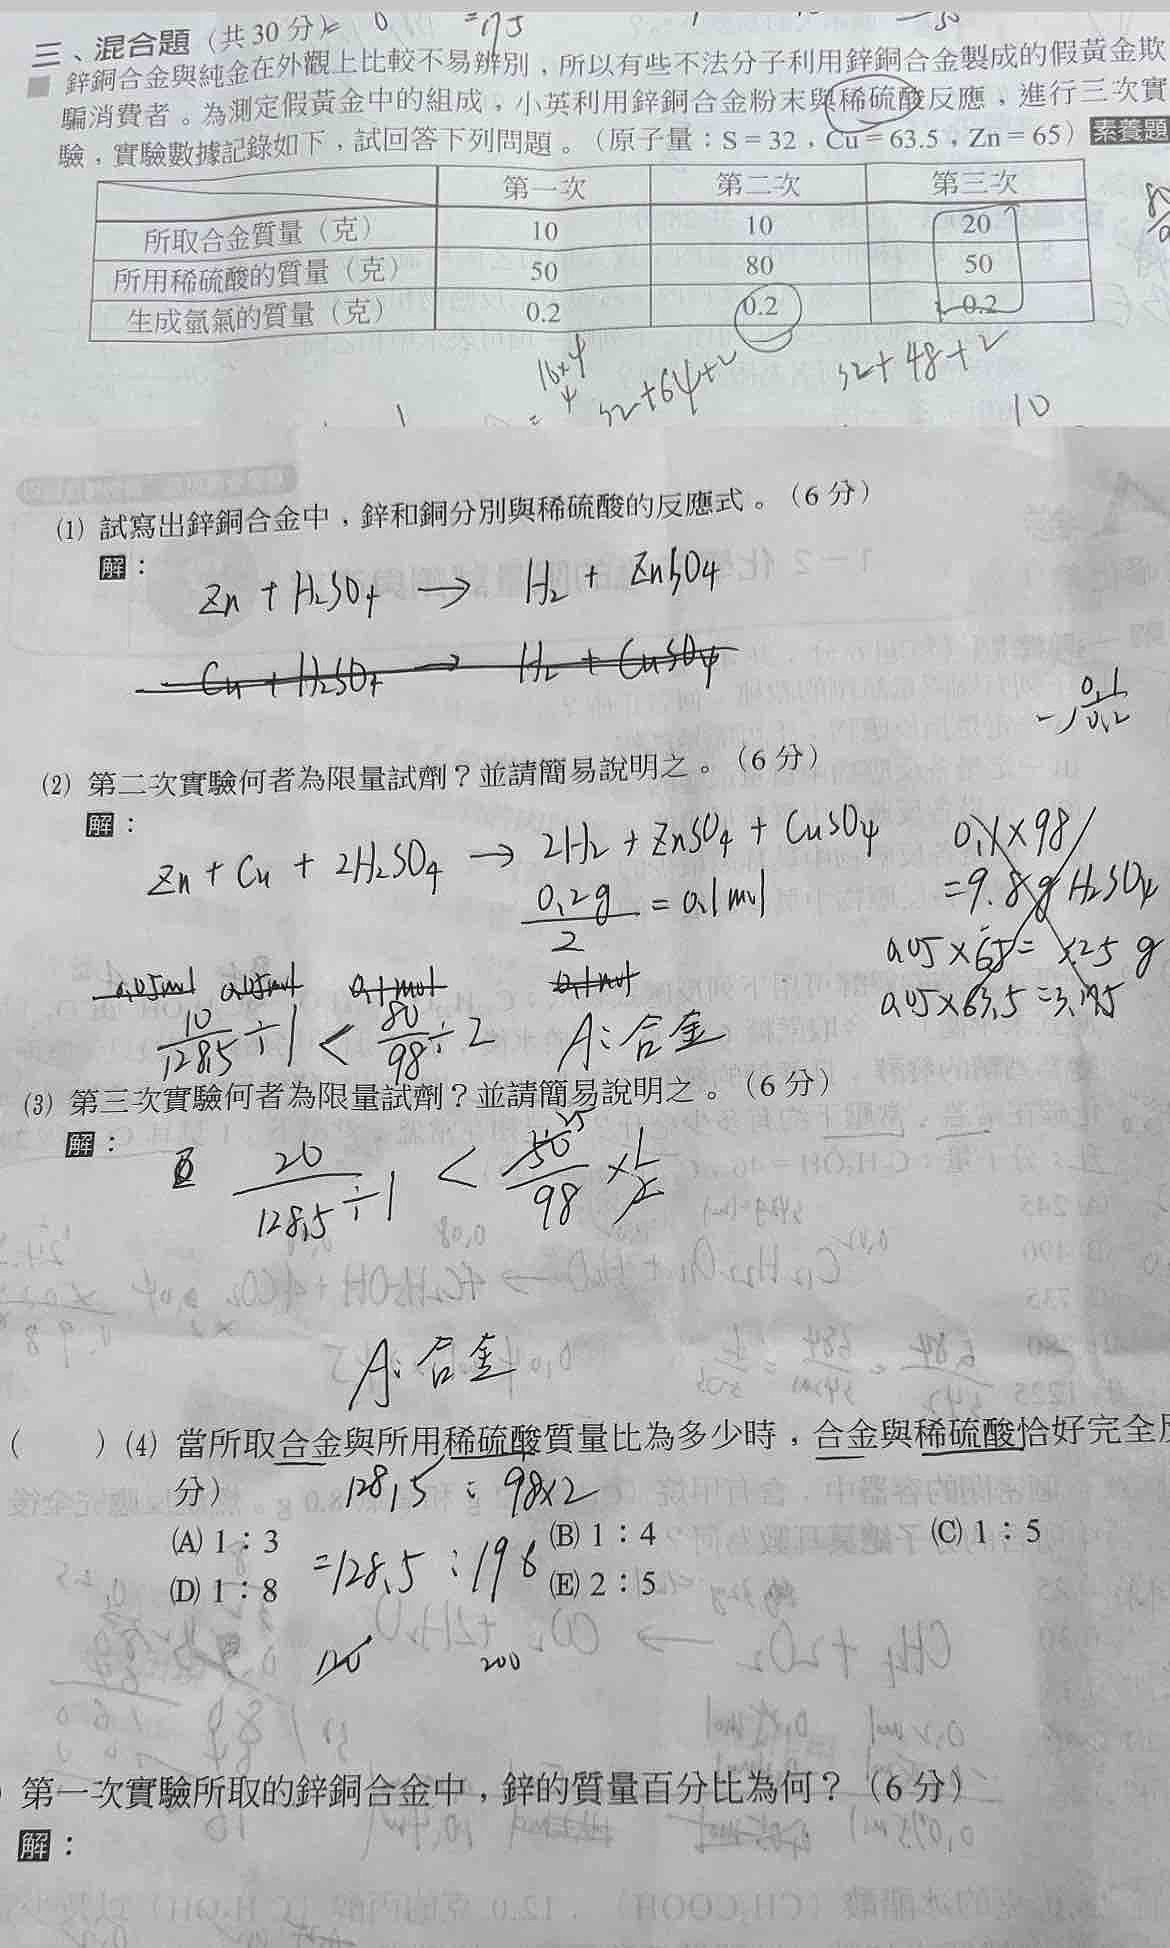 三、混合題（共30分）
鋅銅合金與純金在外觀上比較不易辨別，所以有些不法分子利用鋅銅合金製成的假黃金欺
騙消費者。為測定假黃金中的組成，小英利用鋅銅合金粉末與稀硫酸反應，進行三次實
驗，實驗數據記錄如下，試回答下列問題。（原子量：S＝32，Cu＝63.5，Zn＝65）素養題
第一次 第二次 第三次
所取合金質量（克） 10 10 20
所用稀硫酸的質量（克） 50 80 50
生成氫氣的質量（克） 0.2 0.2 0.2
16×4
32+64+2
32+48+2
10
(1) 試寫出鋅銅合金中，鋅和銅分別與稀硫酸的反應式。（6分）
解：
Zn + H2SO4 → H2 + ZnSO4
Cu + H2SO4 → H2 + CuSO4
(2) 第二次實驗何者為限量試劑？並請簡易說明之。（6分）
解：
Zn + Cu + 2H2SO4 → 2H2 + ZnSO4 + CuSO4
0.2g/2 = 0.1 mol
0.1×98
=9.8g H2SO4
0.05×65=3.25 g
0.05×63.5=3.175
0.05mol 0.05mol 0.1mol 0.1mol
10/128.5 ÷1 < 80/98 ÷2 A:合金
(3) 第三次實驗何者為限量試劑？並請簡易說明之。（6分）
解：
20/128.5 ÷1 < 50/98 × 1/2
25
A:合金
( ) (4) 當所取合金與所用稀硫酸質量比為多少時，合金與稀硫酸恰好完全
分）
128.5 : 98×2
(A) 1：3 (B) 1：4 (C) 1：5
=128.5 : 196
(D) 1：8 (E) 2：5
200
第一次實驗所取的鋅銅合金中，鋅的質量百分比為何？（6分）
解：